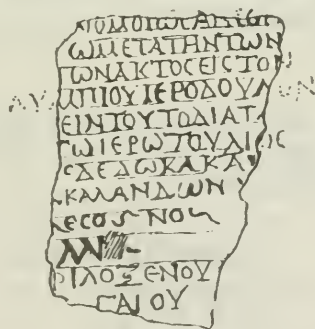 ΝΟΜΟΠΩΤΑΠΙΕΙ
ΩΜΕΤΑΤΗΝΤΩΝ
ΤΩΝΑΚΤΟCΕΙCΤΟ
ΜΠΙΟΥΙΕΡΟΔΟΥΛΩΝ
ΕΙΝΤΟΥΤΟΔΙΑΤ
ΓΩΙΕΡΩΤΟΥΔΙΟC
CΔΕΔΩΚΑΚΑ
ΚΑΛΑΝΔΩΝ
ΕCΟSΝΟ
ΡΙΛΟΞΕΝΟΥ
ΓΑΙΟΥ